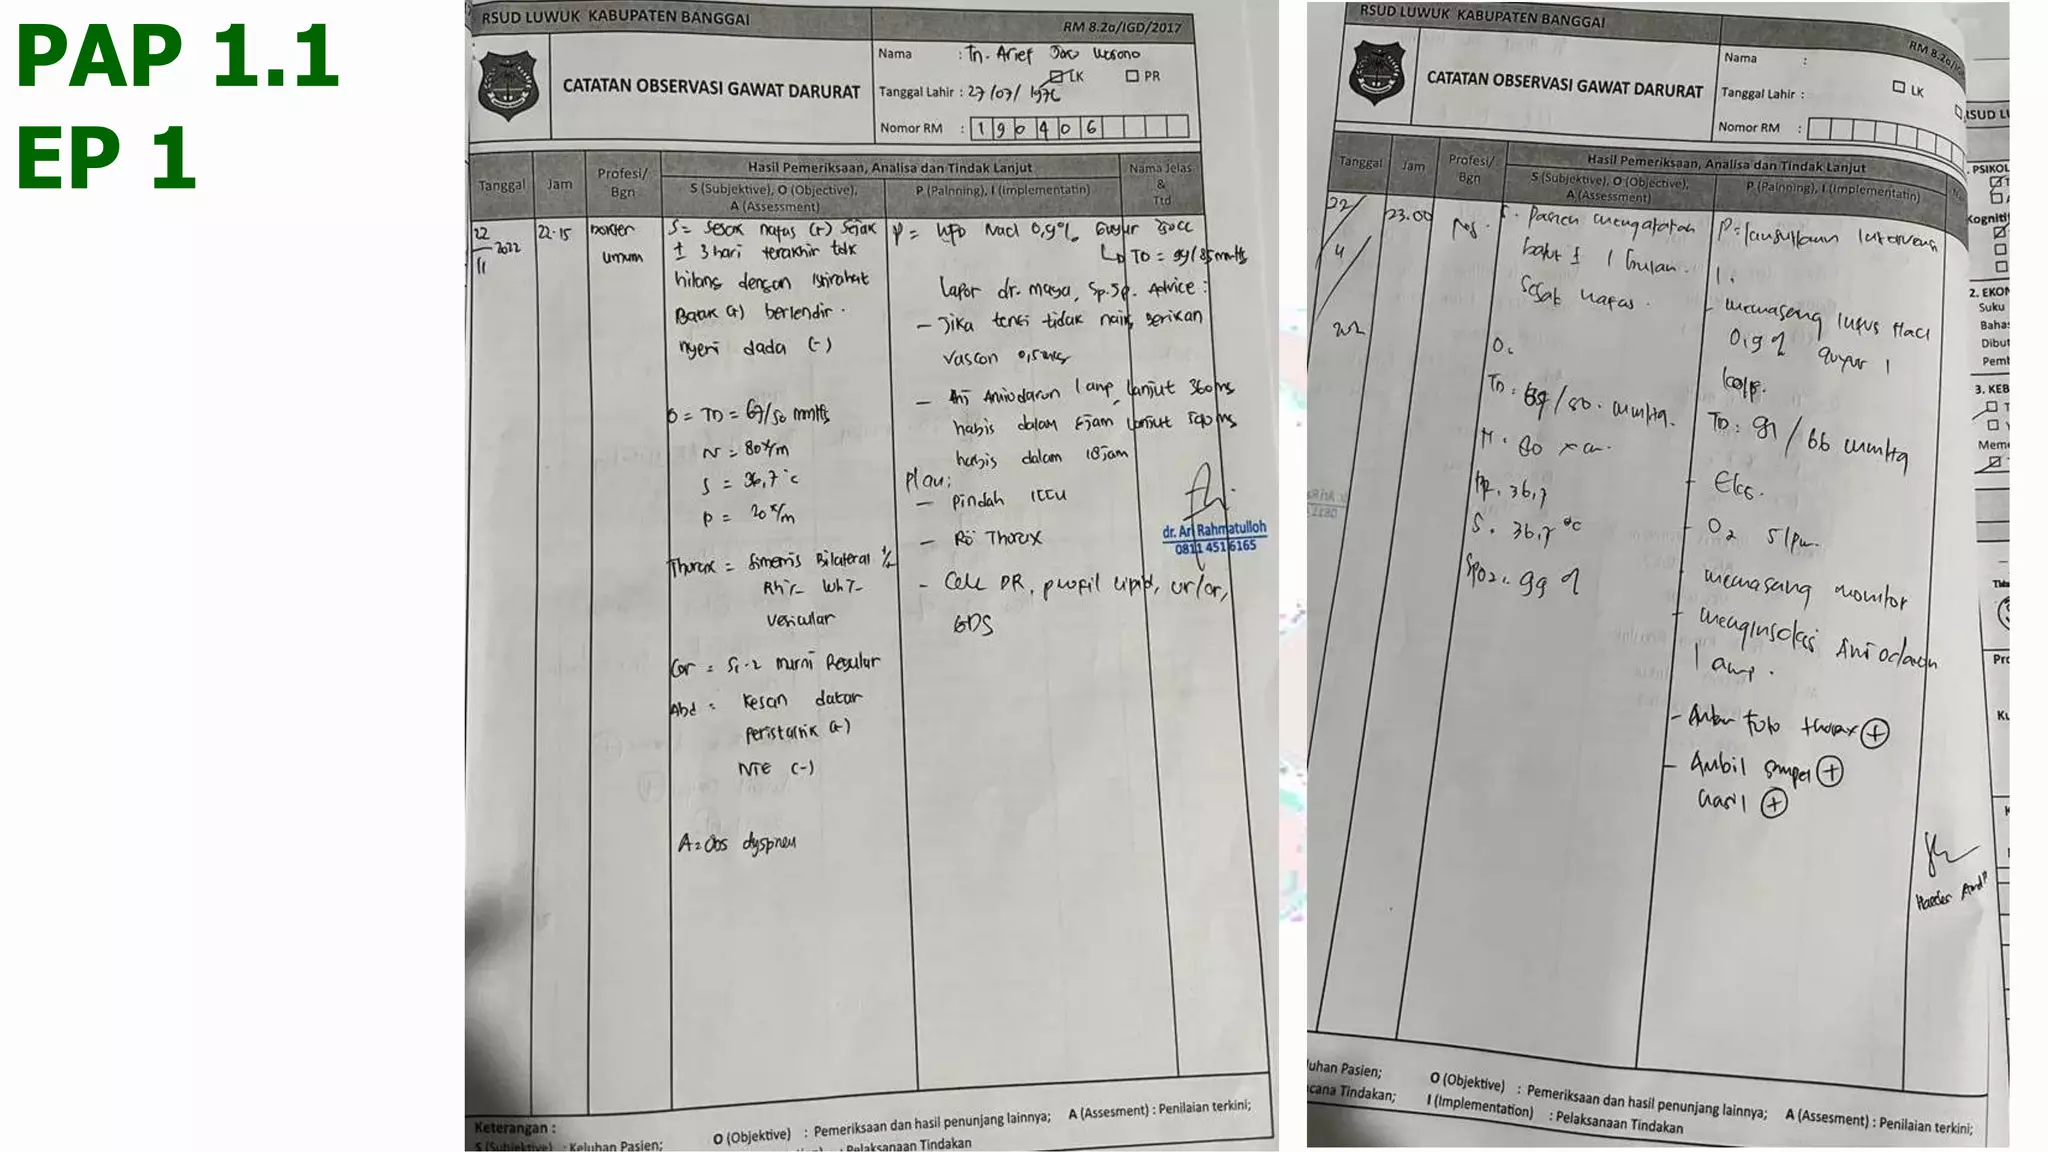 PAP 1.1
EP 1
RSUD LUWUK KABUPATEN BANGGAI
RM 8.2a/IGD/2017
CATATAN OBSERVASI GAWAT DARURAT
Nama : Tn. Arief
LK PR
Tanggal Lahir : 27/07/1976
Nomor RM : 190406
Tanggal Jam Profesi/ Bgn
Hasil Pemeriksaan, Analisa dan Tindak Lanjut
S (Subjektive), O (Objective), A (Assessment)
P (Palnning), I (Implementatin)
Nama Jelas & Ttd
22/11 2022 22.15 Dokter umum
S = Sesak nafas (+) sejak
± 3 hari terakhir tdk
hilang dengan istirahat
Batuk (+) berlendir.
nyeri dada (-)
O = TD = 69/50 mmHg
N = 80x/m
S = 36,7°c
P = 20x/m
Thorax = Simetris Bilateral
Rh -/- Wh -/-
vesicular
Cor = S1-2 murni Regular
Abd = kesan datar
peristaltik (+)
NTE (-)
A = Obs dyspneu
P = IVFD Nacl 0,9% Guyur
TD = 99/85 mmHg
Lapor dr. Maya, Sp.Jp. Advice :
- Jika tensi tidak naik, berikan
vascon 0,5
- Amiodaron 1 amp, lanjut 360 mg
habis dalam 6 jam, lanjut 540 mg
habis dalam 18 jam
Plan:
- Pindah ICCU
- Rö Thorax
- Cek DR, profil lipid, ur/cr,
GDS
dr. Ari Rahmatulloh
0811 4516165
Keterangan :
S (Subjektive) : Keluhan Pasien;
O (Objektive) : Pemeriksaan dan hasil penunjang lainnya; A (Assesment) : Penilaian terkini;
: Pelaksanaan Tindakan
RSUD LUWUK KABUPATEN BANGGAI
RM 8.2a/
CATATAN OBSERVASI GAWAT DARURAT
Nama :
LK
Tanggal Lahir :
Nomor RM :
Tanggal Jam Profesi/ Bgn
Hasil Pemeriksaan, Analisa dan Tindak Lanjut
S (Subjektive), O (Objektive), A (Assessment)
P (Palnning), I (Implementatin)
23.00
S. Pasien mengatakan
batuk ± 1 bulan.
Sesak nafas.
O.
TD : 69/50. mmHg.
N. 80 x/m.
36,7
S. 36,7 °c
SpO2. 99 %
P = lanjutkan Intervensi
- memasang infus Nacl
0,9 % guyur 1
kolf.
TD : 91/66 mmHg
- EKG.
- O2 5 lpm.
- memasang monitor
- Amiodaron
1 amp.
- Antar foto thorax (+)
- Ambil sampel (+)
hasil (+)
luhan Pasien;
cana Tindakan;
O (Objektive) : Pemeriksaan dan hasil penunjang lainnya; A (Assesment) : Penilaian terkini;
I (Implementation) : Pelaksanaan Tindakan
RSUD LU
. PSIKOL
Kogniti
2. EKON
Suku
Bahas
Dibut
Pemb
3. KEB
Meme